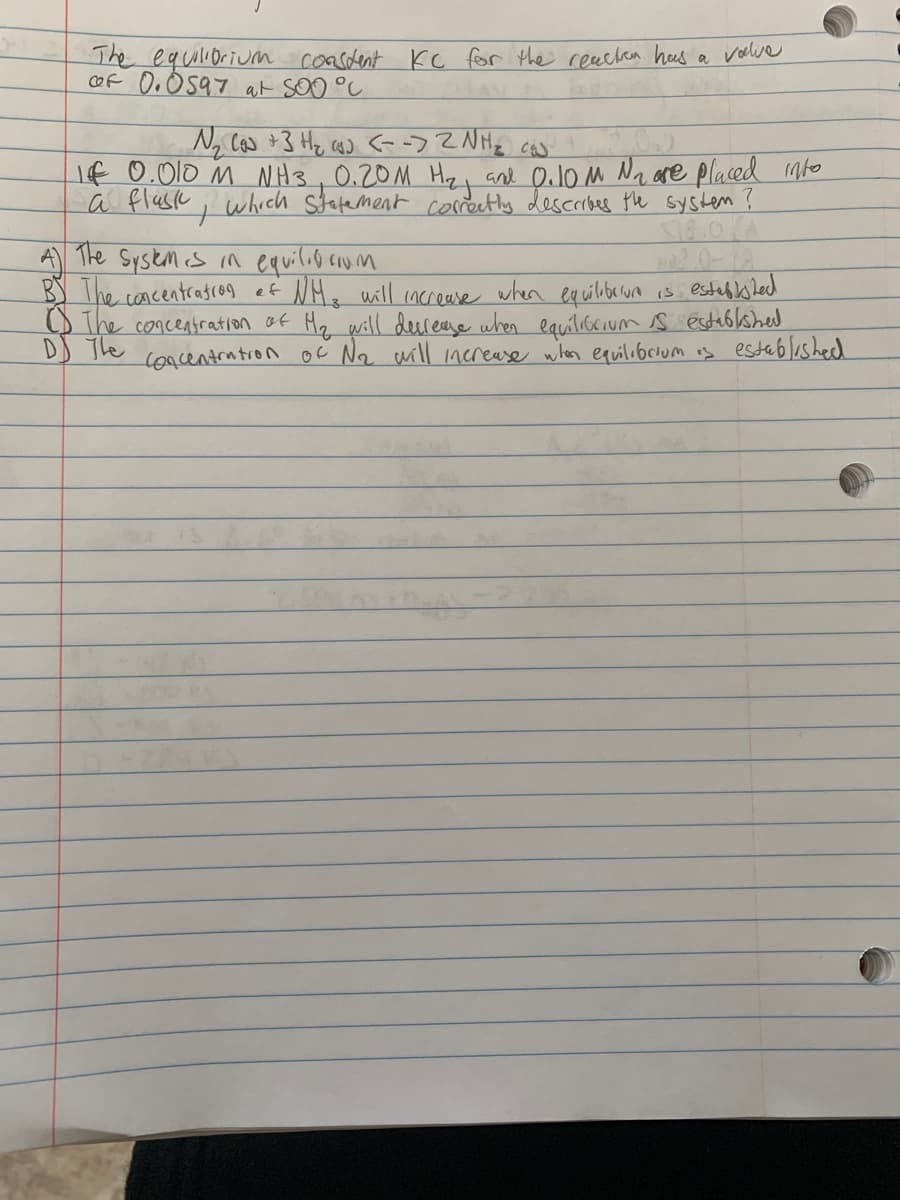 The equilibrium consdent Kc for the reaction has a value
of 0.0597 at 500°C
N₂ (g) + 3 H₂ (g) <--> 2 NH₃ (g)
If 0.010 M NH3, 0.20M H₂, and 0.10 M N₂ are placed into
a flask, which statement correctly describes the system?
A) The System is in equilibrium
B) The concentration of NH₃ will increase when equilibrium is established
C) The concentration of H₂ will decrease when equilibrium is established
D) The concentration of N₂ will increase when equilibrium is established